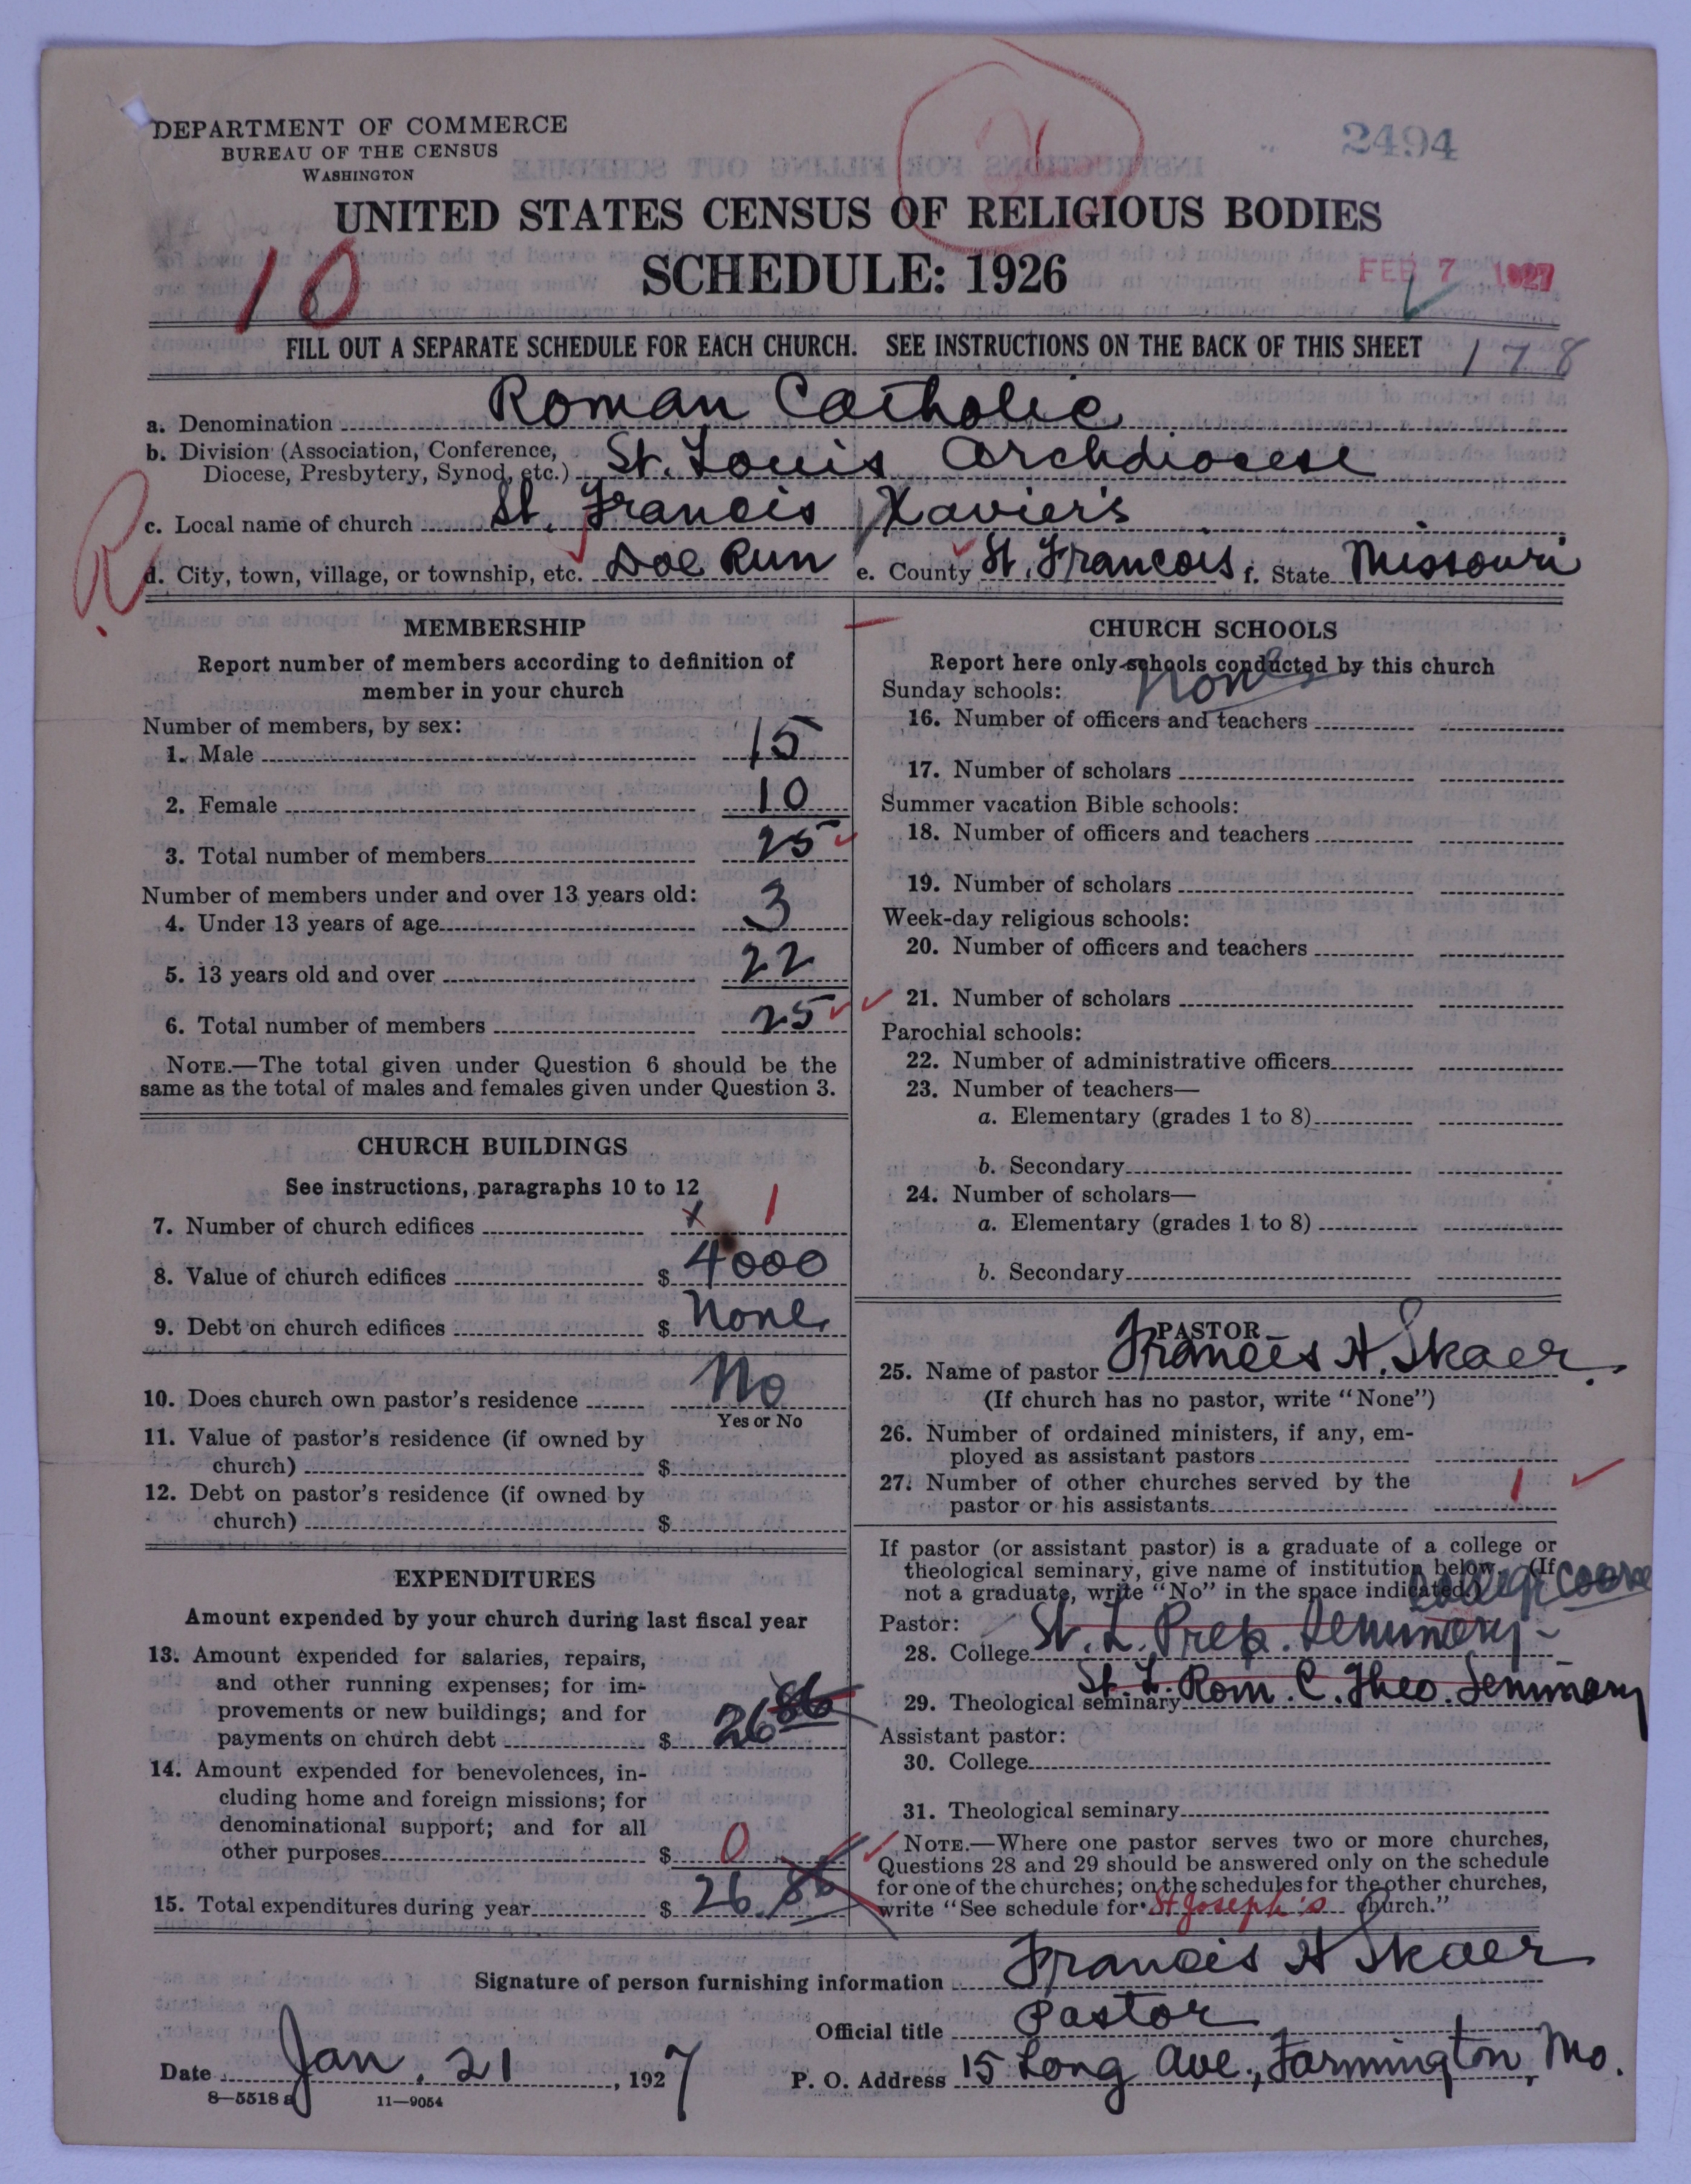 DEPARTMENT OF COMMERCE
BUREAU OF THE CENSUS
WASHINGTON
2494
UNITED STATES CENSUS OF RELIGIOUS BODIES
10
SCHEDULE: 1926
FEB 7 1927
FILL OUT A SEPARATE SCHEDULE FOR EACH CHURCH. SEE INSTRUCTIONS ON THE BACK OF THIS SHEET
178
a. Denomination Roman Catholic
b. Division (Association, Conference,
Diocese, Presbytery, Synod, etc.) St. Louis Archdiocese
c. Local name of church St. Francis Xavier's
d. City, town, village, or township, etc. Doe Run e. County St. Francois f. State Missouri
R
MEMBERSHIP
Report number of members according to definition of
member in your church
Number of members, by sex:
1. Male 15
2. Female 10
3. Total number of members 25
Number of members under and over 13 years old:
4. Under 13 years of age 3
5. 13 years old and over 22
6. Total number of members 25
NOTE.—The total given under Question 6 should be the
same as the total of males and females given under Question 3.
CHURCH BUILDINGS
See instructions, paragraphs 10 to 12
7. Number of church edifices x 1
8. Value of church edifices $ 4000
9. Debt on church edifices $ None
10. Does church own pastor's residence No
Yes or No
11. Value of pastor's residence (if owned by
church) $
12. Debt on pastor's residence (if owned by
church) $
EXPENDITURES
Amount expended by your church during last fiscal year
13. Amount expended for salaries, repairs,
and other running expenses; for im-
provements or new buildings; and for
payments on church debt $ 26 86
14. Amount expended for benevolences, in-
cluding home and foreign missions; for
denominational support; and for all
other purposes $ 0
15. Total expenditures during year $ 26.86
CHURCH SCHOOLS
Report here only schools conducted by this church
None
Sunday schools:
16. Number of officers and teachers
17. Number of scholars
Summer vacation Bible schools:
18. Number of officers and teachers
19. Number of scholars
Week-day religious schools:
20. Number of officers and teachers
21. Number of scholars
Parochial schools:
22. Number of administrative officers
23. Number of teachers—
a. Elementary (grades 1 to 8)
b. Secondary
24. Number of scholars—
a. Elementary (grades 1 to 8)
b. Secondary
PASTOR
25. Name of pastor Francis H. Skaer
(If church has no pastor, write "None")
26. Number of ordained ministers, if any, em-
ployed as assistant pastors
27. Number of other churches served by the
pastor or his assistants 1
If pastor (or assistant pastor) is a graduate of a college or
theological seminary, give name of institution below. (If
not a graduate, write "No" in the space indicated.)
Pastor:
28. College St. L. Prep. Seminary
29. Theological seminary St. L. Rom. C. Theo. Seminary
Assistant pastor:
30. College
31. Theological seminary
NOTE.—Where one pastor serves two or more churches,
Questions 28 and 29 should be answered only on the schedule
for one of the churches; on the schedules for the other churches,
write "See schedule for St Joseph's church."
Signature of person furnishing information Francis H Skaer
Official title Pastor
Date Jan. 21, 1927
P. O. Address 15 Long Ave., Farmington, Mo.
8—5518 a
11—9054